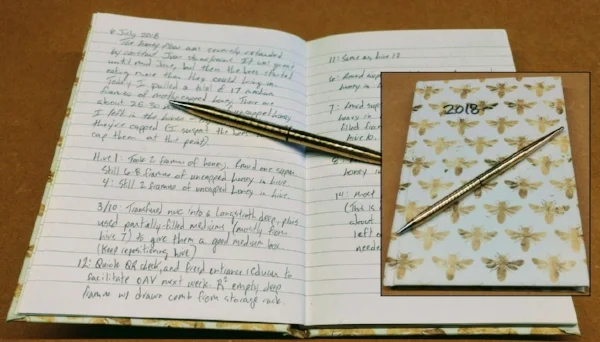 8 July 2018
The honey flow was severely retarded
by constant June downpours. It was great
until mid June, but then the bees started
eating more than they could bring in.
Today I pulled a total of 17 medium
frames of mostly-capped honey. There are
about 26-30
I left in the hives
they're capped (I suspect the bees
cap them at this point).
Hive 1: Took 2 frames of honey. Removed one super.
Still 6-8 frames of uncapped honey in hive.
4: Still 2 frames of uncapped honey in hive.
3/10: Transferred nuc into 6 Langstroth deep, plus
used partially-filled mediums (mostly from
hive 7) to give them a good medium box.
(Keep repositioning hive)
12: Quick QR check, and fixed entrance reducer to
facilitate OAV next week. empty deep
frame w/ drawn comb from storage rack.
11: Same as hive 12
6:
honey in
7:
honey in
hive 10.
honey in
14: More
(This is
about
left
needed
2018